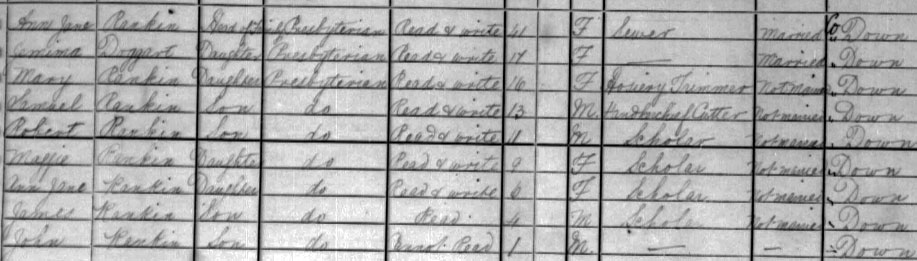 Ann Jane Rankin Head of Family Presbyterian Read & write 41 F Sewer Married Co Down
Jemima Doggart Daughter Presbyterian Read & write 17 F — Married Down
Mary Rankin Daughter Presbyterian Read & write 16 F Hosiery Trimmer Not married Down
Samuel Rankin Son do Read & write 13 M Handkerchief Cutter Not married Down
Robert Rankin Son do Read & write 11 M Scholar Not married Down
Maggie Rankin Daughter do Read & write 9 F Scholar Not married Down
Ann Jane Rankin Daughter do Read & write 6 F Scholar Not married Down
James Rankin Son do Read 4 M Scholar Not married Down
John Rankin Son do Cannot Read 1 M — — Down